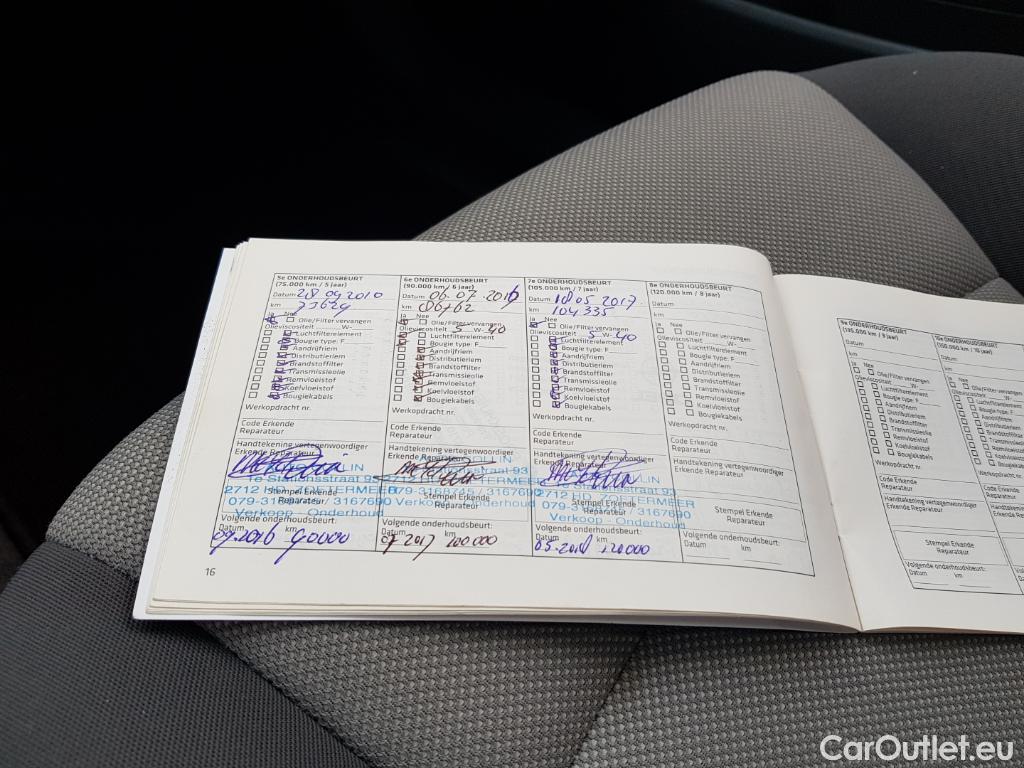 5e ONDERHOUDSBEURT
(75.000 km / 5 jaar)
Datum 28 09 2010
km
Ja Nee
Olie/Filter vervangen
Olieviscositeit W-
Luchtfilterelement
Bougie type: F
Aandrijfriem
Distributieriem
Brandstoffilter
Transmissieolie
Remvloeistof
Koelvloeistof
Bougiekabels
Werkopdracht nr.
Code Erkende
Reparateur
Handtekening vertegenwoordiger
Erkende
1e Stationsstraat 93
2712 HD ZOETERMEER
Stempel Erkende
Reparateur
079-316 / 3167690
Verkoop - Onderhoud
Volgende onderhoudsbeurt:
Datum km
09.2016 90000
6e ONDERHOUDSBEURT
(90.000 km / 6 jaar)
Datum 06.07.2016
km 86762
Ja Nee
Olie/Filter vervangen
Olieviscositeit 5 W- 40
Luchtfilterelement
Bougie type: F
Aandrijfriem
Distributieriem
Brandstoffilter
Transmissieolie
Remvloeistof
Koelvloeistof
Bougiekabels
Werkopdracht nr.
Code Erkende
Reparateur
Handtekening vertegenwoordiger
Erkende Reparateur
Stempel Erkende
Reparateur
Verkoop - Onderhoud
Volgende onderhoudsbeurt:
Datum km
07 2017 100000
7e ONDERHOUDSBEURT
(105.000 km / 7 jaar)
Datum 18 05 2017
km 104335
Ja Nee
Olie/Filter vervangen
Olieviscositeit 5 W- 40
Luchtfilterelement
Bougie type: F
Aandrijfriem
Distributieriem
Brandstoffilter
Transmissieolie
Remvloeistof
Koelvloeistof
Bougiekabels
Werkopdracht nr.
Code Erkende
Reparateur
Handtekening vertegenwoordiger
Erkende
1e Stationsstraat 93
2712 HD ZOETERMEER
Stempel Erkende
Reparateur
Verkoop - Onderhoud
Volgende onderhoudsbeurt:
Datum km
05.2018 120000
8e ONDERHOUDSBEURT
(120.000 km / 8 jaar)
Datum
km
Ja Nee
Olie/Filter vervangen
Olieviscositeit W-
Luchtfilterelement
Bougie type: F
Aandrijfriem
Distributieriem
Brandstoffilter
Transmissieolie
Remvloeistof
Koelvloeistof
Bougiekabels
Werkopdracht nr.
Code Erkende
Reparateur
Handtekening vertegenwoordiger
Erkende Reparateur
Stempel Erkende
Reparateur
Volgende onderhoudsbeurt:
Datum km
16
9e ONDERHOUDSBEURT
(135.000 km / 9 jaar)
Datum
km
Ja Nee
Olie/Filter vervangen
Olieviscositeit W-
Luchtfilterelement
Bougie type: F
Aandrijfriem
Distributieriem
Brandstoffilter
Transmissieolie
Remvloeistof
Koelvloeistof
Bougiekabels
Werkopdracht nr.
Code Erkende
Reparateur
Handtekening vertegenwoordiger
Erkende Reparateur
Stempel Erkende
Reparateur
Volgende onderhoudsbeurt:
Datum km
10e ONDERHOUDSBEURT
(150.000 km / 10 jaar)
Datum
km
Ja Nee
CarOutlet.eu